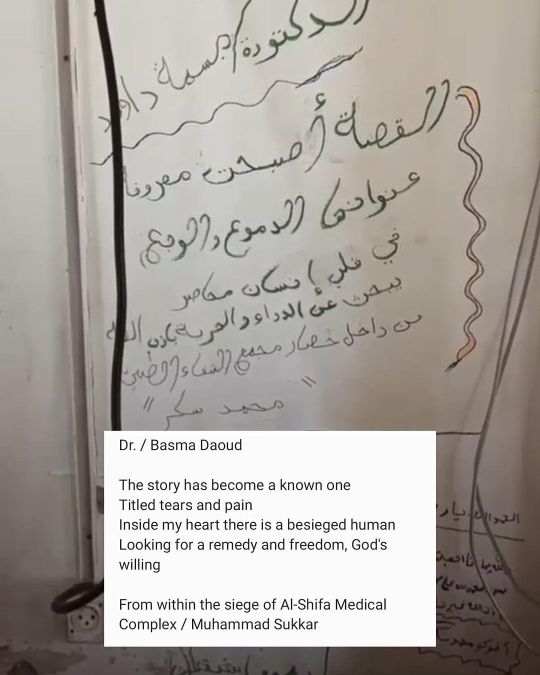 الدكتورة/بسمة داود
القصة أصبحت معروفة
عنوانها الدموع والوجع
في قلبي إنسان محاصر
يبحث عن الدواء والحرية بإذن الله
من داخل حصار مجمع الشفاء الطبي
"محمد سكر"
Dr. / Basma Daoud
The story has become a known one
Titled tears and pain
Inside my heart there is a besieged human
Looking for a remedy and freedom, God's
willing
From within the siege of Al-Shifa Medical
Complex / Muhammad Sukkar